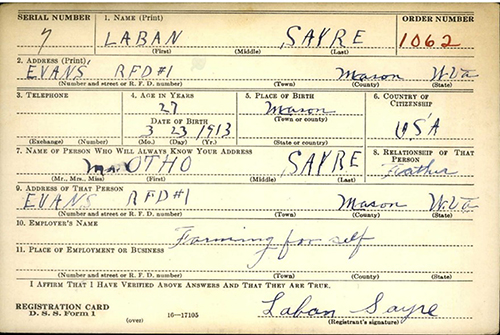 SERIAL NUMBER 1. NAME (Print) ORDER NUMBER
7 LABAN SAYRE 1062
(First) (Middle) (Last)
2. ADDRESS (Print)
EVANS RFD#1 Mason W.Va
(Number and street or R. F. D. number) (Town) (County) (State)
3. TELEPHONE 4. AGE IN YEARS 5. PLACE OF BIRTH 6. COUNTRY OF CITIZENSHIP
27 Mason
DATE OF BIRTH (Town or county)
3 23 1913 USA
(Exchange) (Number) (Mo.) (Day) (Yr.) (State or country)
7. NAME OF PERSON WHO WILL ALWAYS KNOW YOUR ADDRESS 8. RELATIONSHIP OF THAT PERSON
Mr. OTHO SAYRE Father
(Mr., Mrs., Miss) (First) (Middle) (Last)
9. ADDRESS OF THAT PERSON
EVANS RFD#1 Mason W.Va
(Number and street or R. F. D. number) (Town) (County) (State)
10. EMPLOYER'S NAME
Farming for self
11. PLACE OF EMPLOYMENT OR BUSINESS
(Number and street or R. F. D. number) (Town) (County) (State)
I AFFIRM THAT I HAVE VERIFIED ABOVE ANSWERS AND THAT THEY ARE TRUE.
REGISTRATION CARD Laban Sayre
D. S. S. Form 1 (over) 16—17105 (Registrant's signature)